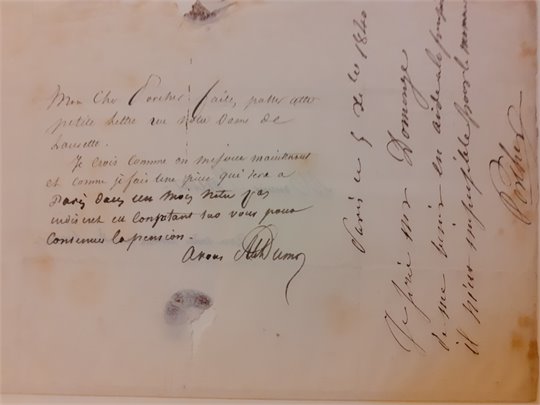 Mon cher Porcher faites passer cette
petite lettre rue notre Dame de
Lorette.
Je crois comme on me joue maintenant
et comme je fais une pièce qui sera à
Paris dans un mois n'être pas
indiscret en comptant sur vous pour
continuer la pension.
A vous Alex Dumas
Paris ce 5 1840
Je prie Mr Domange
de me venir en aide
il m'est impossible pour le moment
Porcher